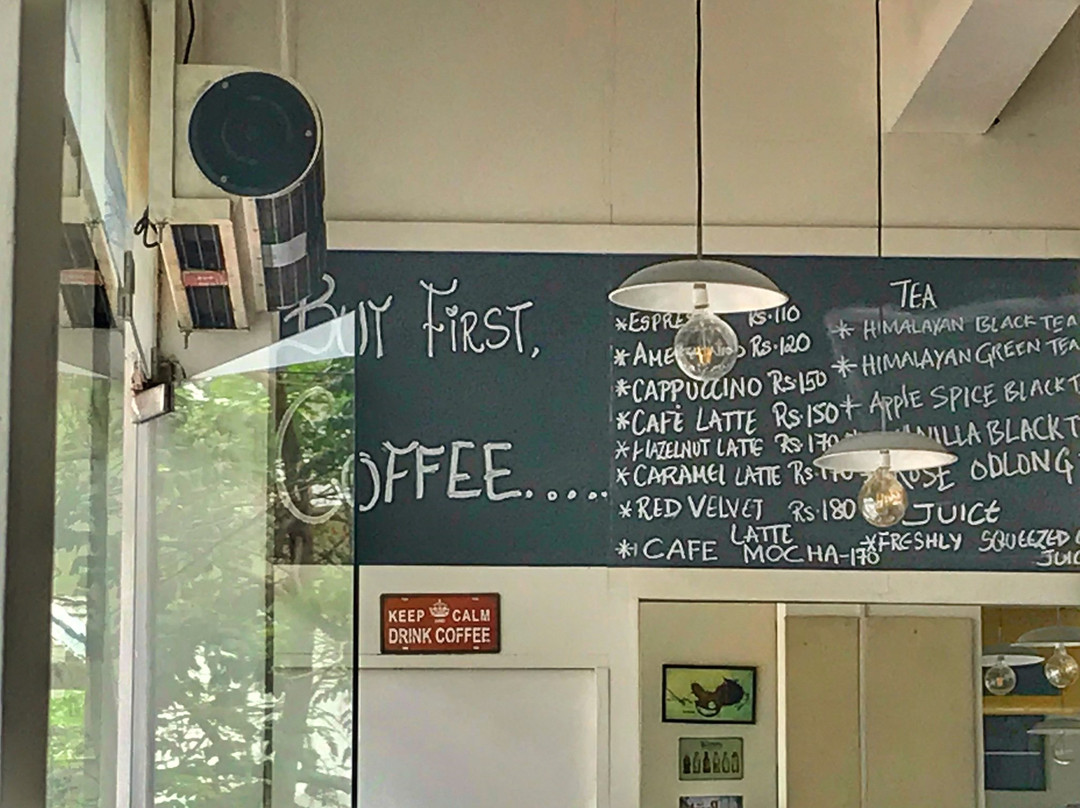 BUY FIRST,
COFFEE.....
*ESPRES Rs.110
*AME O Rs.120
*CAPPUCCINO Rs150
*CAFÈ LATTE Rs.150
*HAZELNUT LATTE Rs.170
*CARAMEL LATTE Rs.170
*RED VELVET Rs.180
LATTE
*CAFE MOCHA-170
TEA
* HIMALAYAN BLACK TEA
* HIMALAYAN GREEN TEA
* APPLE SPICE BLACK T
ANILLA BLACK T
ROSE OOLONG
JUICE
*FRESHLY SQUEEZED
JUIC
KEEP CALM
DRINK COFFEE